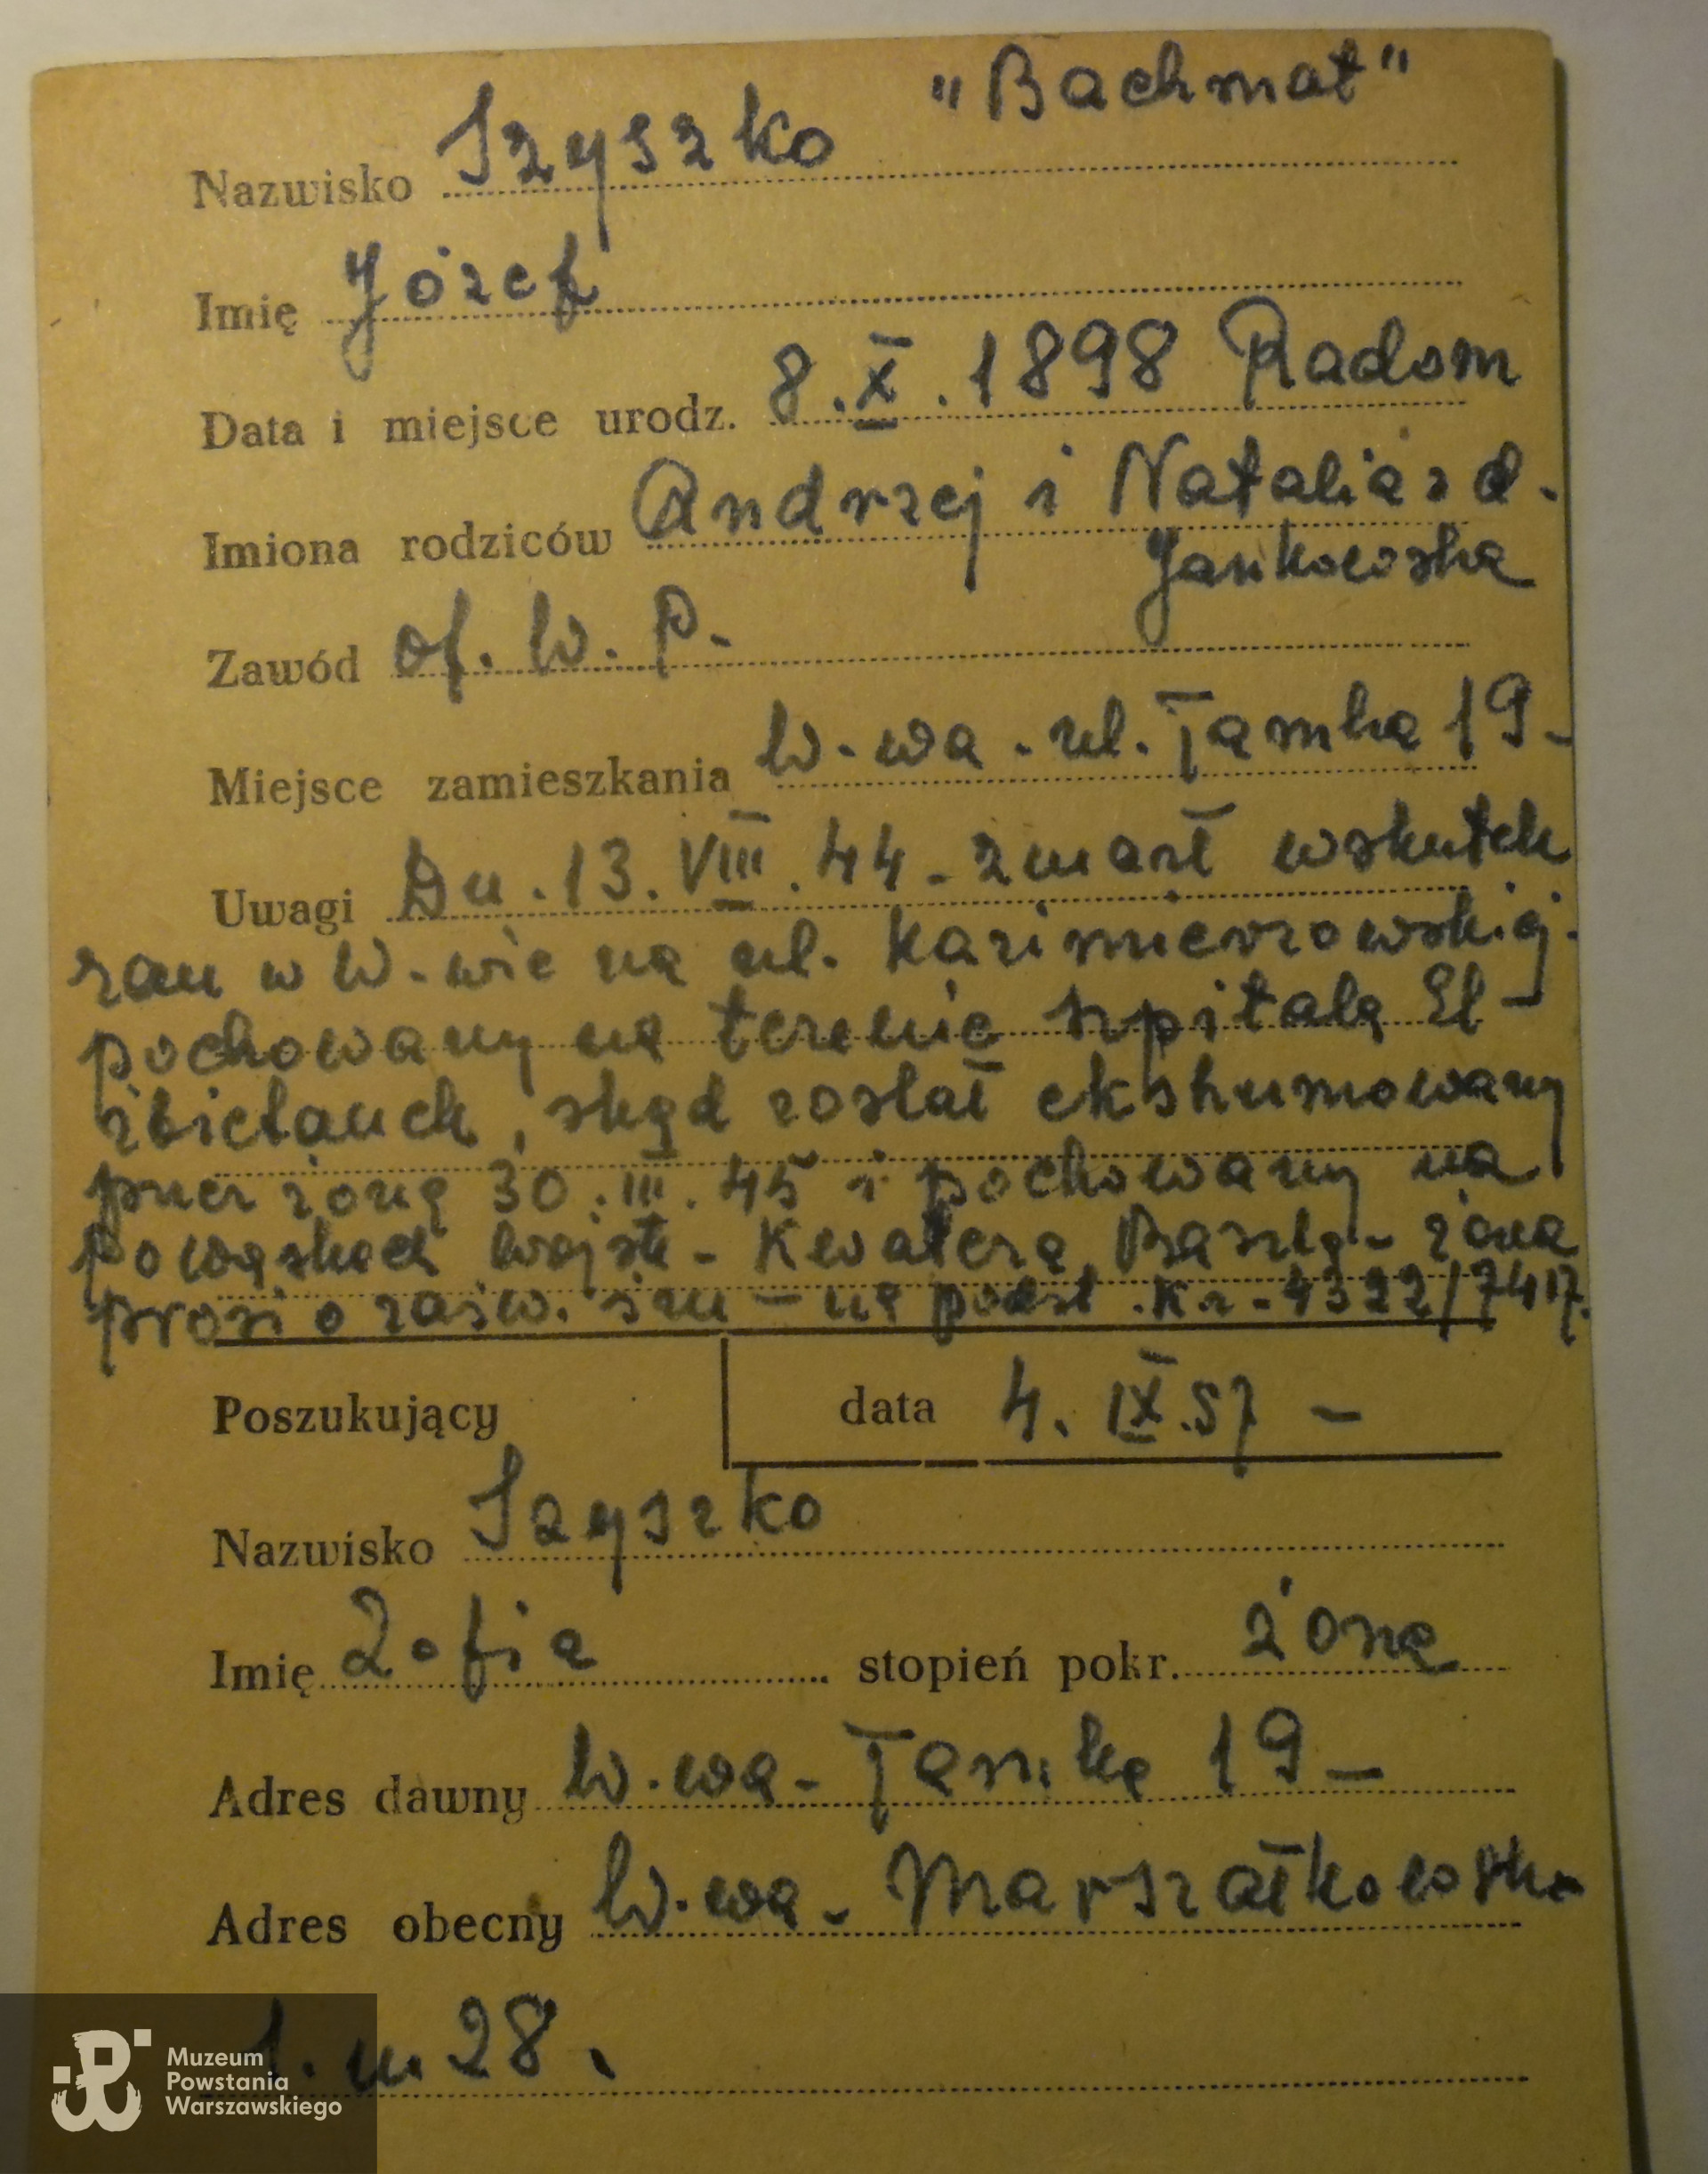 "Bachmat"
Nazwisko Szyszko
Imię Józef
Data i miejsce urodz. 8.X.1898 Radom
Imiona rodziców Andrzej i Natalia z d.
Jankowska
Zawód of. W. P.
Miejsce zamieszkania W-wa - ul. Tamka 19-
Uwagi Dn. 13.VIII.44 - zmarł wskutek
ran w W-wie na ul. Kazimierzowskiej.
pochowany na terenie szpitala El-
żbietanek, skąd został ekshumowany
przez żonę 30.III.45 i pochowany na
Powązkach Wojsk - Kwatera Baszta - żona
prosi o zaśw. śm - na podst. Kr. - 4322/7417.
Poszukujący data 4. IX.57 -
Nazwisko Szyszko
Imię Zofia stopień pokr. żona
Adres dawny W-wa - Tamka 19 -
Adres obecny W-wa - Marszałkowska
1. m 28.
Muzeum
Powstania
Warszawskiego